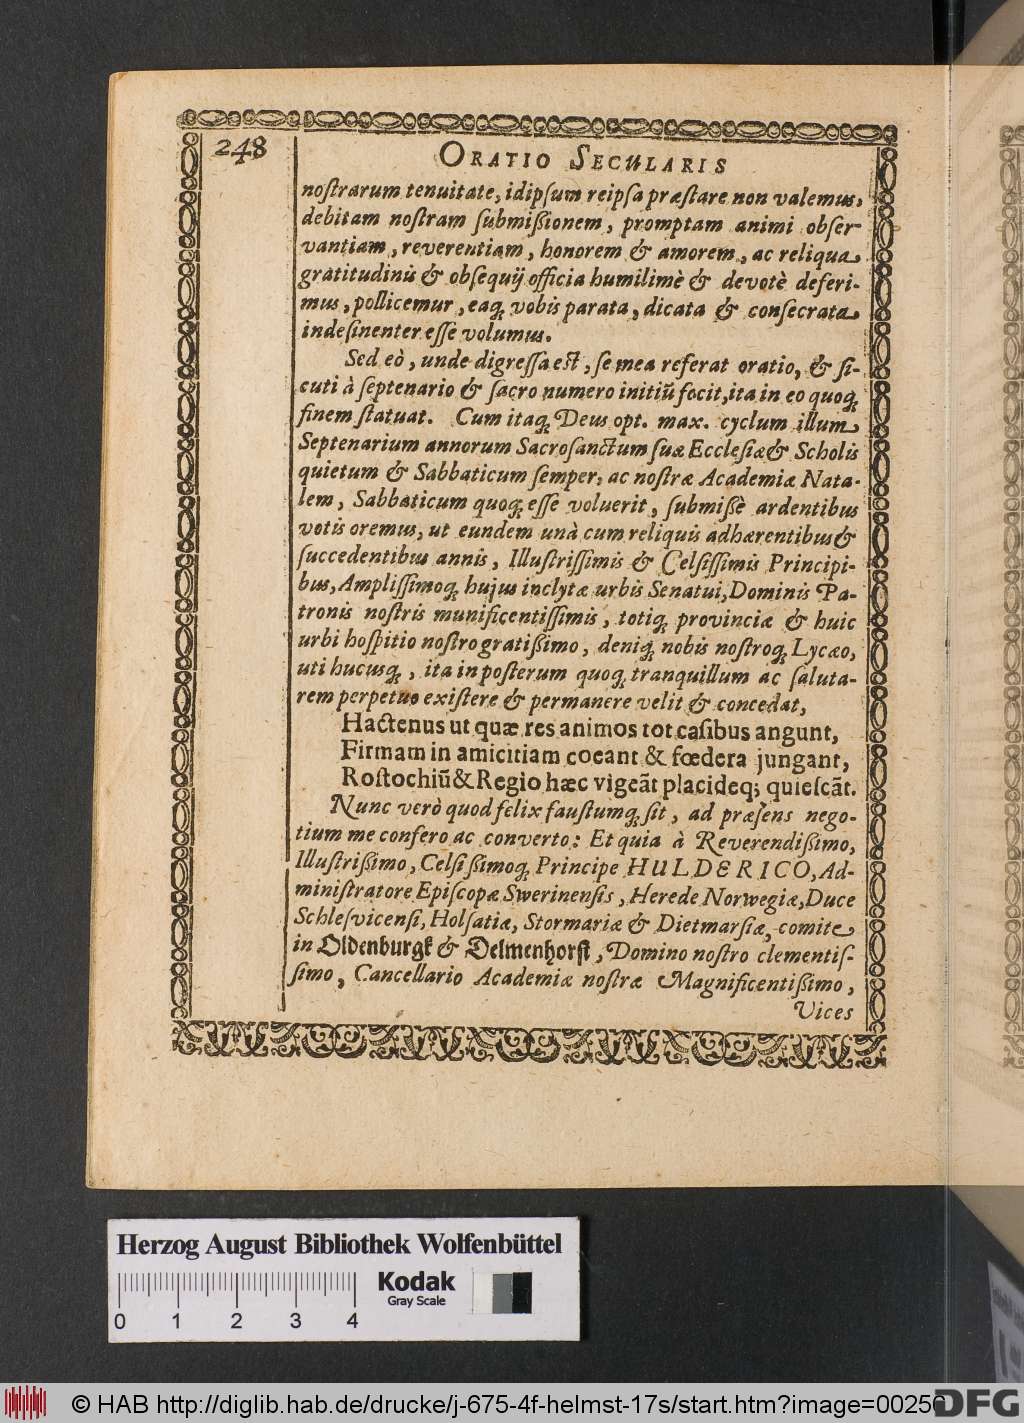 248
ORATIO SECULARIS
noſtrarum tenuitate, idipſum reipſa præſtare non valemus,
debitam noſtram ſubmißionem, promptam animi obſer
vantiam, reverentiam, honorem & amorem, ac reliqua
gratitudinis & obſequij officia humilimè & devotè deferi-
mus, pollicemur, eaq́; vobis parata, dicata & conſecrata
indeſinenter eſſe volumus.
Sed eò, unde digreſſa eſt, ſe mea referat oratio, & ſi-
cuti à ſeptenario & ſacro numero initiũ fecit, ita in eo quoq́;
finem ſtatuat. Cum itaq́; Deus opt. max. cyclum illum
Septenarium annorum Sacroſanctum ſuæ Eccleſiæ & Scholis
quietum & Sabbaticum ſemper, ac noſtræ Academiæ Nata-
lem, Sabbaticum quoq́; eſſe voluerit, ſubmißè ardentibus
votis oremus, ut eundem unà cum reliquis adhærentibus &
ſuccedentibus annis, Illuſtriſſimis & Celſiſſimis Principi-
bus, Ampliſſimoq́; hujus inclytæ urbis Senatui, Dominis Pa-
tronis noſtris munificentiſſimis, totiq́; provinciæ & huic
urbi hoſpitio noſtro gratißimo, deniq́; nobis noſtroq́; Lycæo,
uti hucusq́;, ita in poſterum quoq́; tranquillum ac ſaluta-
rem perpetuo exiſtere & permanere velit & concedat,
Hactenus ut quæ res animos tot caſibus angunt,
Firmam in amicitiam coeant & fœdera jungant,
Roſtochiũ & Regio hæc vigeãt placideq; quieſcãt.
Nunc verò quod felix fauſtumq́; ſit, ad præſens nego-
tium me confero ac converto: Et quia à Reverendißimo,
Illuſtrißimo, Celſißimoq́; Principe HULDERICO, Ad-
miniſtratore Epiſcopæ Swerinenſis, Herede Norwegiæ, Duce
Schleſvicenſi, Holſatiæ, Stormariæ & Dietmarſiæ, comite
in Oldenburgk & Delmenhorſt, Domino noſtro clementiſ-
ſimo, Cancellario Academiæ noſtræ Magnificentißimo,
Vices
Herzog August Bibliothek Wolfenbüttel
Kodak
Gray Scale
0 1 2 3 4
© HAB http://diglib.hab.de/drucke/j-675-4f-helmst-17s/start.htm?image=00256
DFG